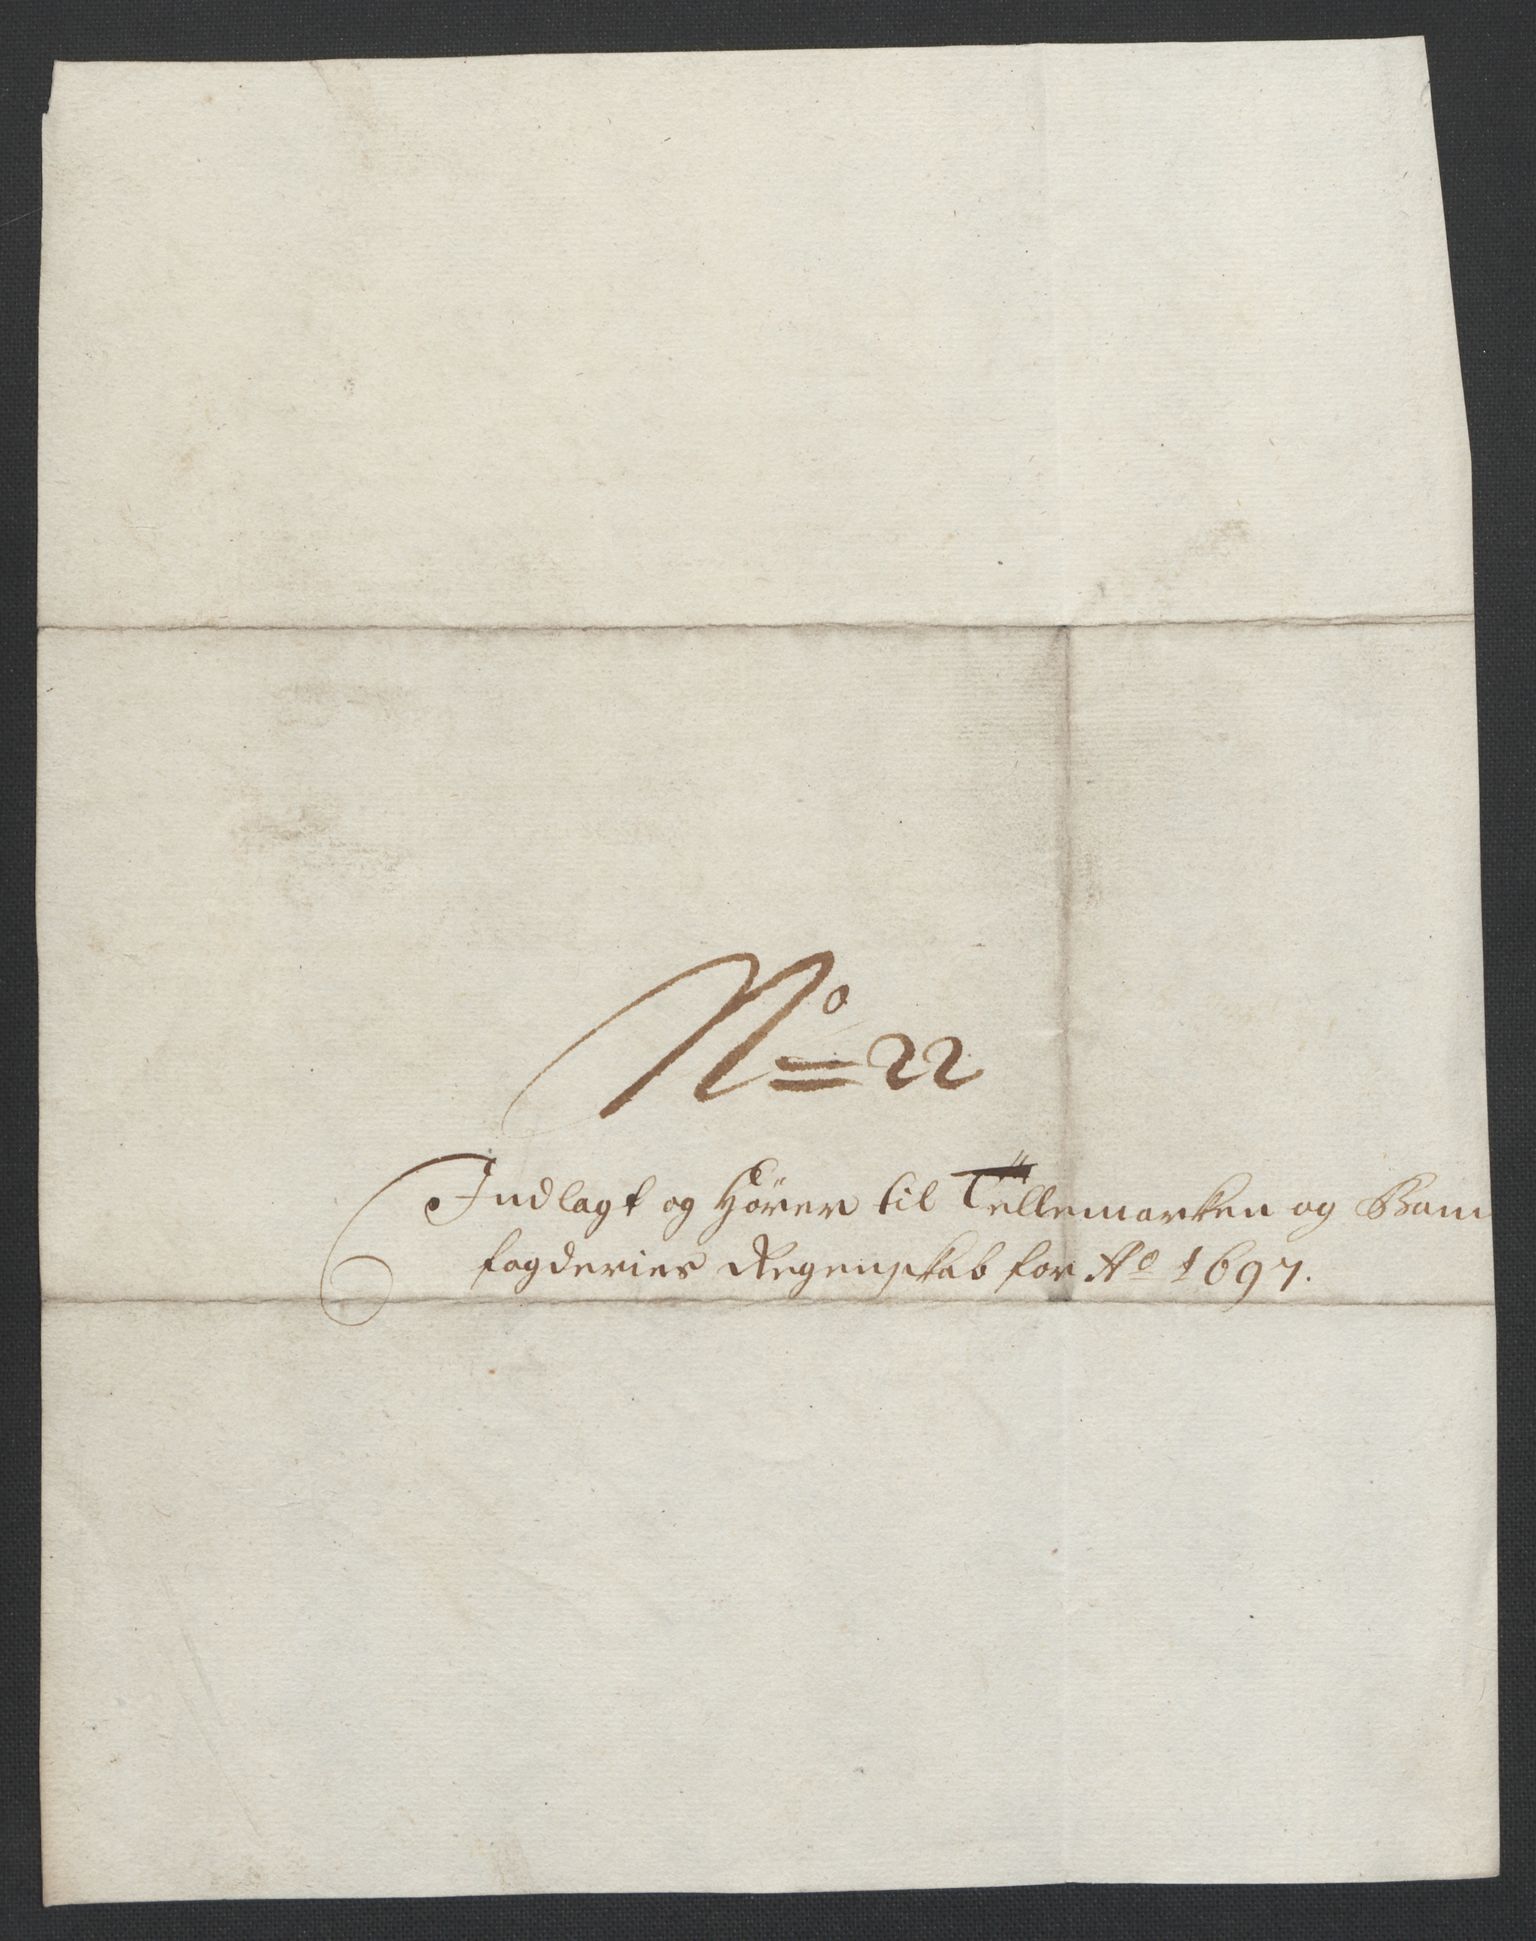 No 22
Indlagt og Hörer til Tellemarken og Bam
fogderies Regenskab for Ao 1697.